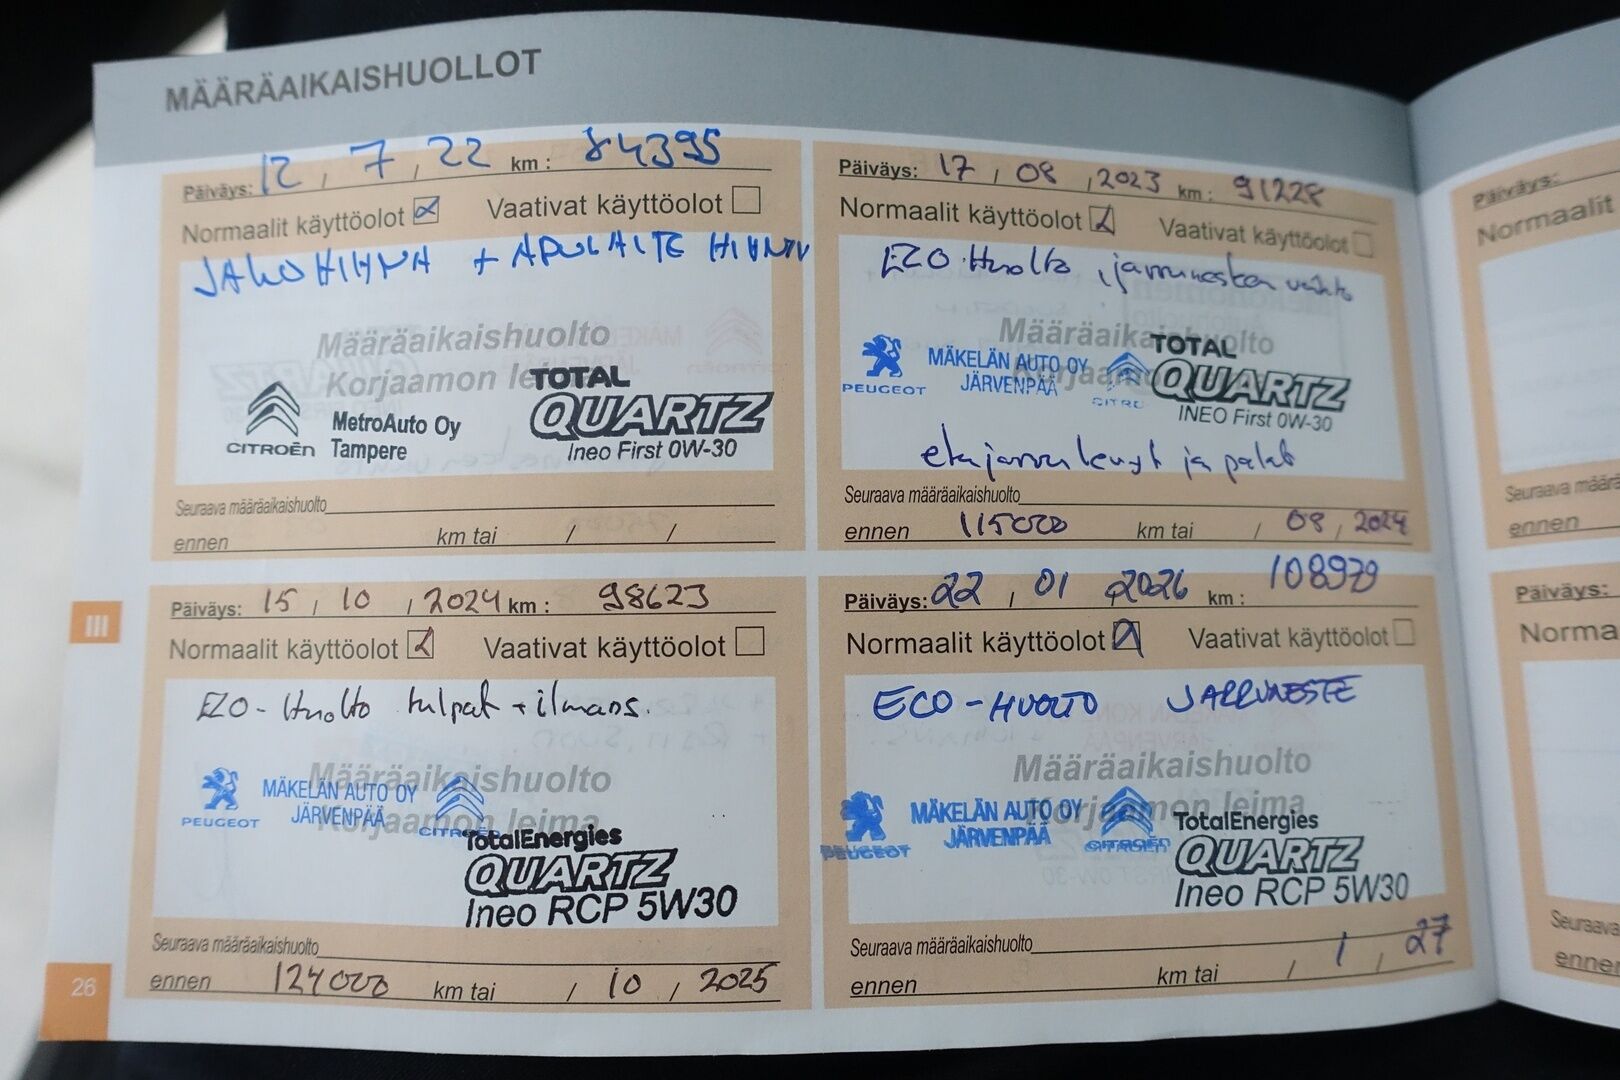 MÄÄRÄAIKAISHUOLLOT
Päiväys: 12 , 7 , 22 km : 84395
Normaalit käyttöolot Vaativat käyttöolot
JAKOHIHNA + APULAITE HIHNA
Määräaikaishuolto
Korjaamon leima
TOTAL
QUARTZ
Ineo First 0W-30
CITROËN
MetroAuto Oy
Tampere
Seuraava määräaikaishuolto
ennen km tai / /
Päiväys: 17 , 08 , 2023 km : 91228
Normaalit käyttöolot Vaativat käyttöolot
ECO-Huolto , jarrunesteen vaihto
Määräaikaishuolto
PEUGEOT
MÄKELÄN AUTO OY
JÄRVENPÄÄ
CITRO
TOTAL
QUARTZ
INEO First 0W-30
etujarrulevyt ja palat
Seuraava määräaikaishuolto
ennen 115000 km tai / 08 , 2024
III
Päiväys: 15 , 10 , 2024 km : 98623
Normaalit käyttöolot Vaativat käyttöolot
ECO-Huolto tulpat + ilmans.
Määräaikaishuolto
Korjaamon leima
PEUGEOT
MÄKELÄN AUTO OY
JÄRVENPÄÄ
CITROËN
TotalEnergies
QUARTZ
Ineo RCP 5W30
Seuraava määräaikaishuolto
ennen 124000 km tai / 10 , 2025
Päiväys: 22 , 01 , 2026 km : 108979
Normaalit käyttöolot Vaativat käyttöolot
ECO-HUOLTO JARRUNESTE
Määräaikaishuolto
Korjaamon leima
PEUGEOT
MÄKELÄN AUTO OY
JÄRVENPÄÄ
CITROËN
TotalEnergies
QUARTZ
Ineo RCP 5W30
Seuraava määräaikaishuolto
ennen km tai / 1 , 27
26
Päiväys:
Normaalit
Seuraava määrä
ennen
Päiväys:
Norma
Seuraava
ennen